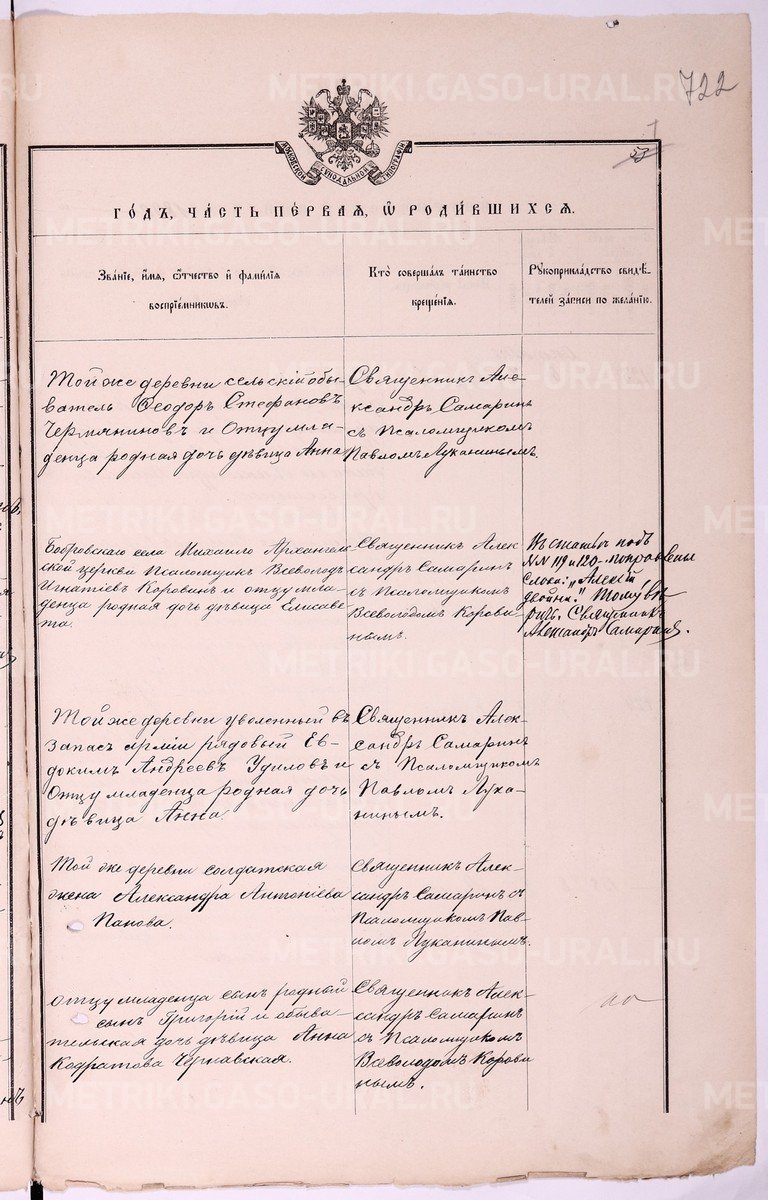 722
53
МОСКОВСКОЙ СѴНОДАЛЬНОЙ ТИПОГРАФІИ
ГО́ДЪ, ЧА́СТЬ ПЕ́РВАЯ, Ѡ РОДИ́ВШИХСЯ.
Зва́нїе, и́мя, ѻ҆́тчество и҆ фами́лїя
воспрїе́мникѡвъ.
Кто̀ соверша́лъ та́инство
креще́нїя.
Рꙋкоприкла́дство свидѣ́-
телей за́писи по жела́нїю.
Той же деревни сельскій обы-
ватель Ѳеодоръ Стефановъ
Чермяниновъ и Отцу мла-
денца родная дочь дѣвица Анна
Священникъ Але-
ксандръ Самаринъ
съ Псаломщикомъ
Павломъ Луканинымъ.
Бобровскаго села Михаило Архангель
ской церкви Псаломщик Всеволодъ
Игнатіев Коровин и отцу мла-
денца родная дочь дѣвица Елисаве
та.
Священникъ Алек
сандръ Самаринъ
съ Псаломщикомъ
Всеволодомъ Корови-
нымъ.
Въ статьѣ подъ
№№ 119 и 120 - поправлены
слова: „Алексій
двойни." Тому вѣ
рить, Священникъ
Александръ Самаринъ.
Той же деревни уволенный въ
запас арміи рядовый Ев-
докимъ Андреевъ Удиловъ и
Отцу младенца родная дочь
дѣвица Анна
Священникъ Алек-
сандръ Самаринъ
съ Псаломщикомъ
Павломъ Лука-
нинымъ.
Той же деревни солдатская
жена Александра Антоніева
Панова.
Священникъ Алек-
сандръ Самаринъ съ
Псаломщикомъ Пав-
ломъ Луканинымъ.
Отцу младенца сынъ родный
сынъ Григорій и обыва-
тельская дочь дѣвица Анна
Кодратова Чернавская.
Священникъ Алек-
сандръ Самаринъ
съ Псаломщикомъ
Всеволодомъ Корови
нымъ.
METRIKI.GASO-URAL.RU